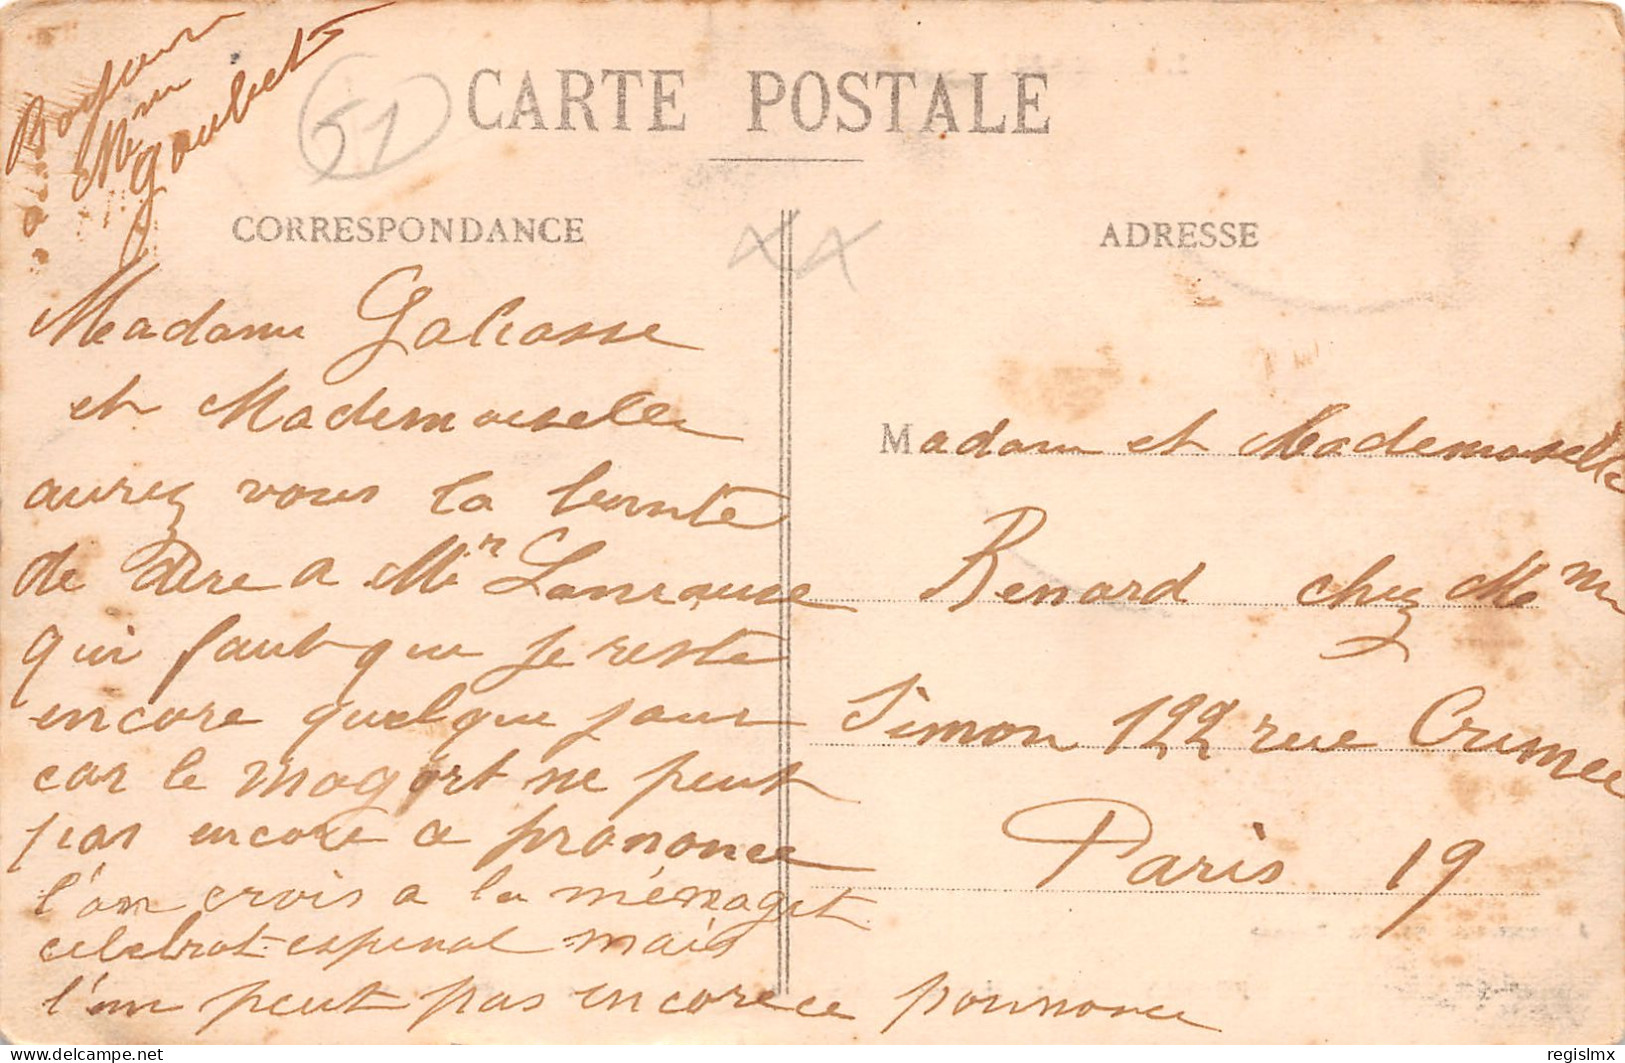 Bonjour
Mme
Goubet
51
CARTE POSTALE
CORRESPONDANCE
ADRESSE
Madame Galiasse
et Mademoiselle
aurez vous la bonte
de dire a Mr
qui faut que je reste
encore quelque jour
car le mogort ne peut
pas encore ce prononce
l'on crois a la ménagit
celebrot espinal mais
l'on peut pas encore ce pronnonce
Madam et Mademoiselle
Renard chez Mme
Simon 122 rue Crimee
Paris 19
regislmx